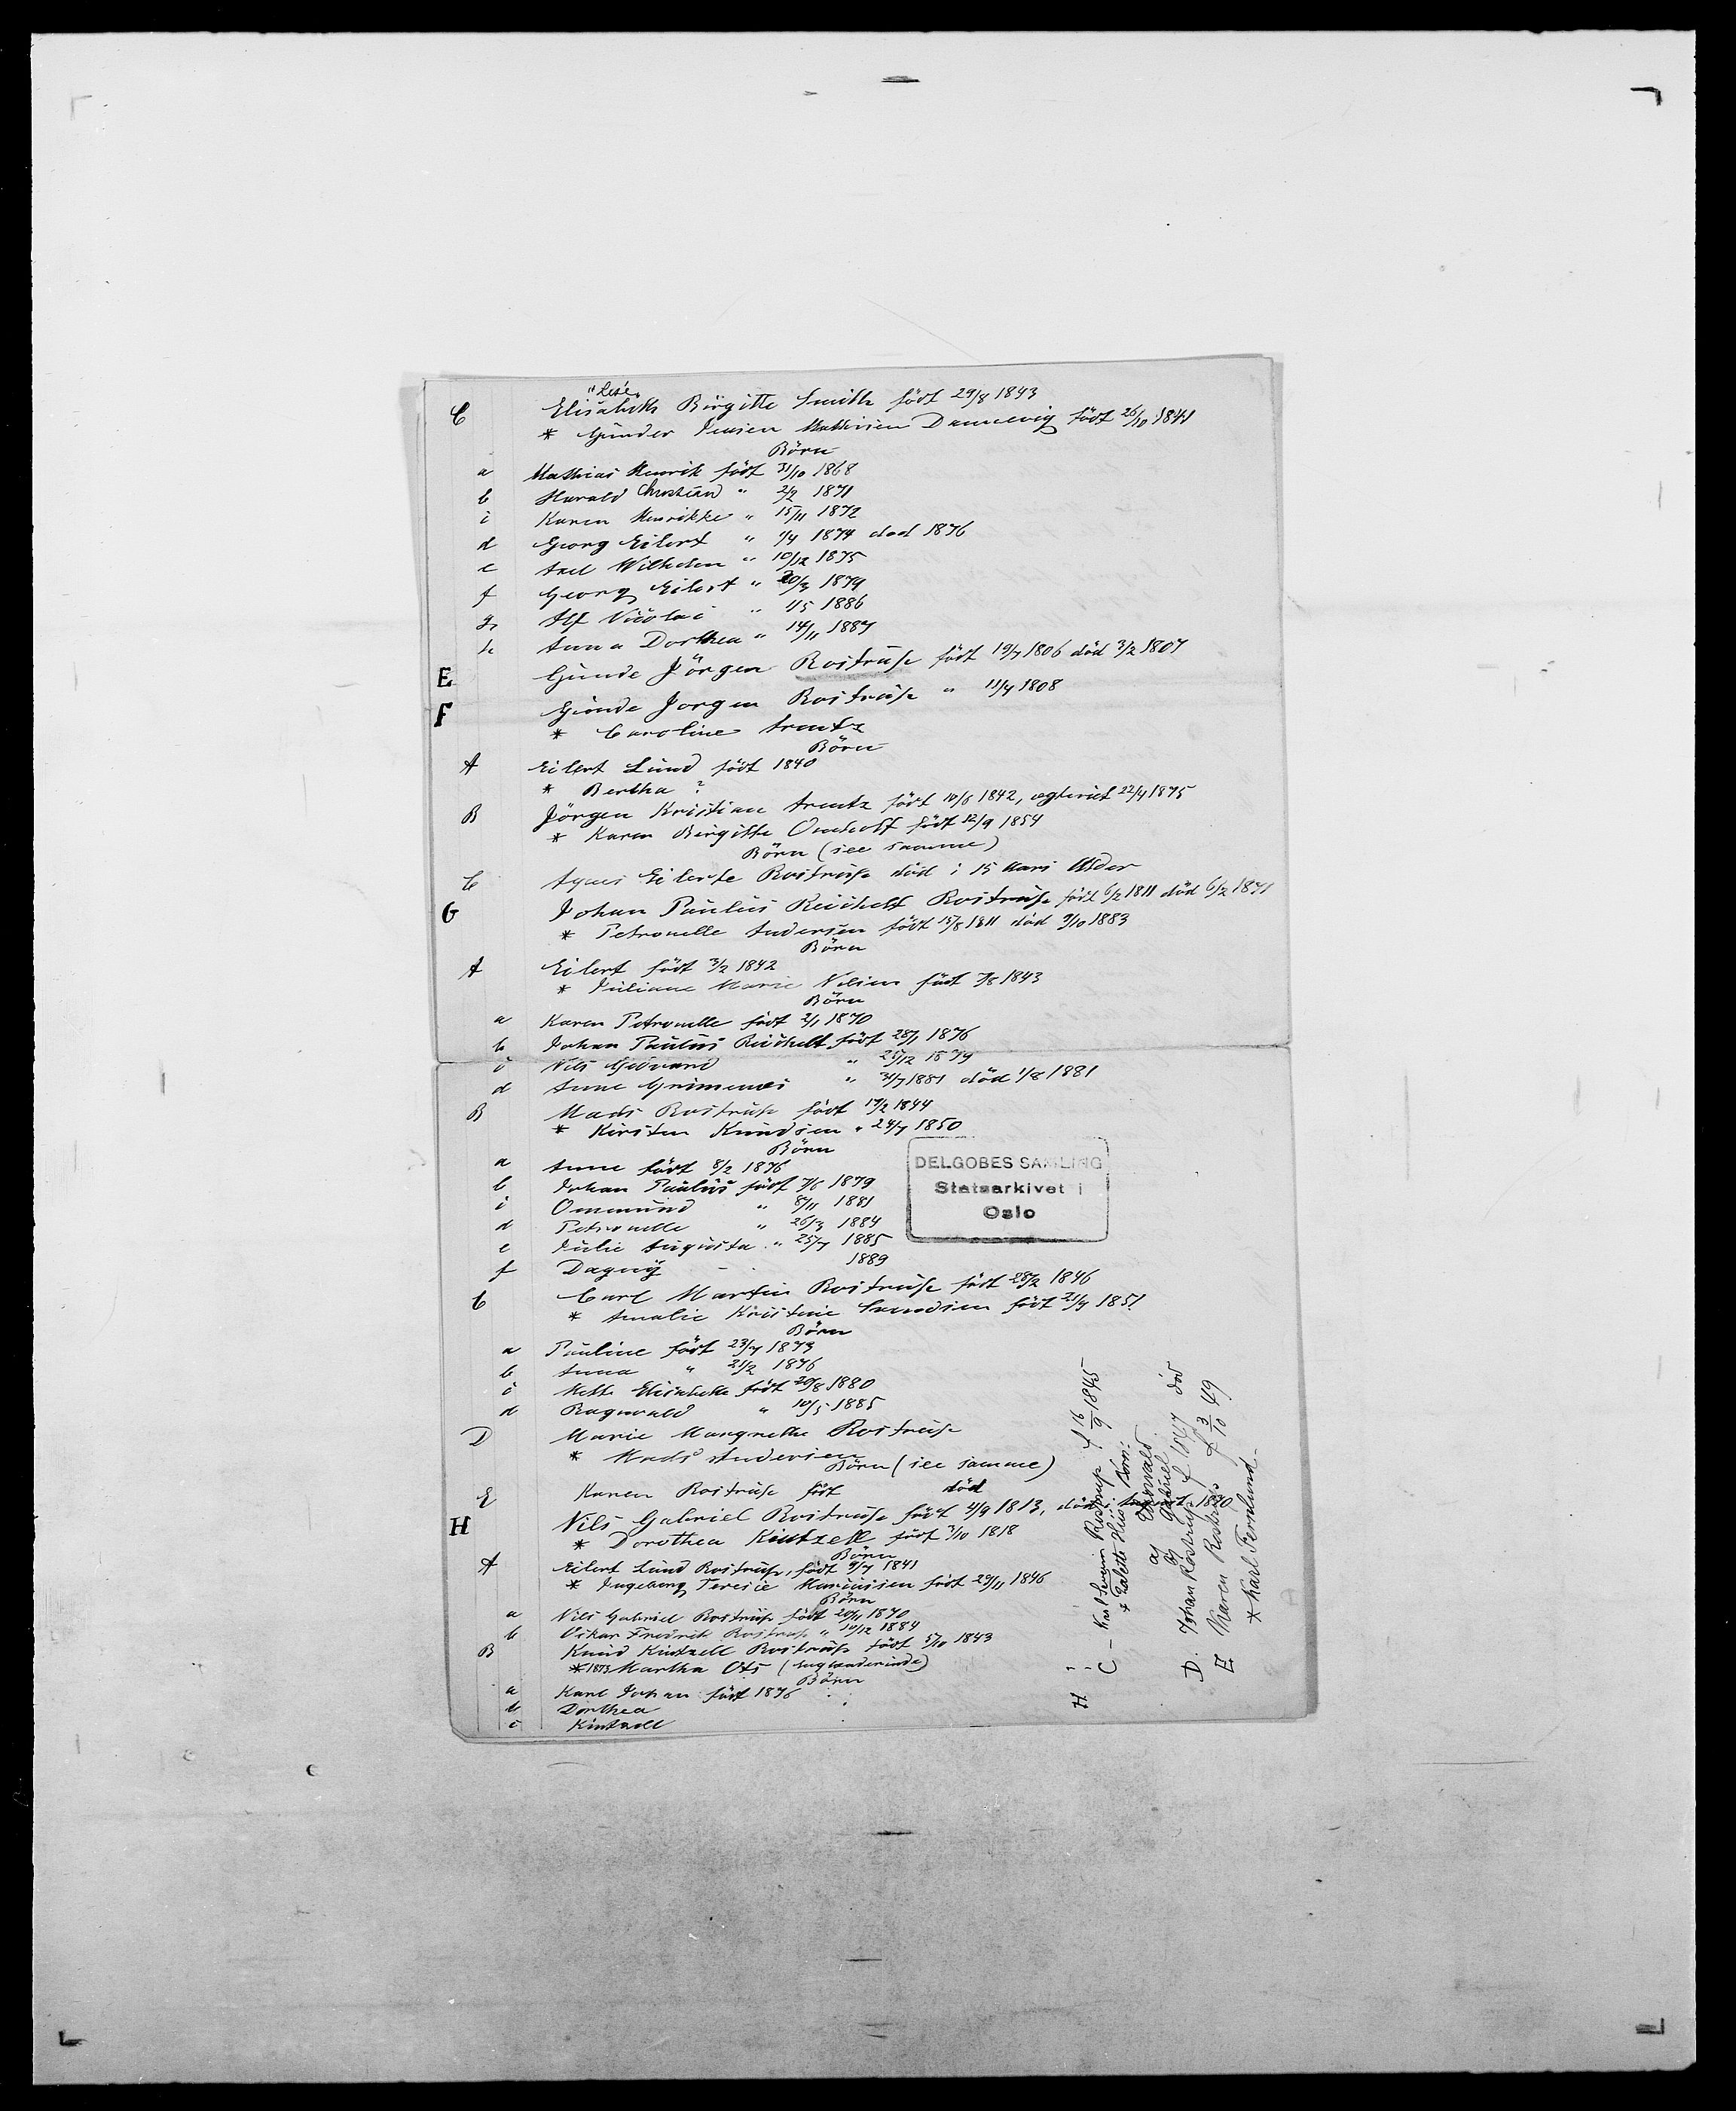 "Lise"
C Elisabeth Birgitte Smith födt 29/8 1843
* Gunder Jensen Mathisen Dannevig födt 26/10 1841
Börn
a Mathias Henrik födt 31/10 1868
b Harald Christian " 2/2 1871
c Karen Henrikke " 15/11 1872
d Georg Eilert " 1/4 1874 död 1876
e Axel Wilhelm " 10/12 1875
f Georg Eilert " 20/3 1879
g Alf Nicolai " 1/5 1886
h Anna Dorthea " 14/11 1887
E Gunde Jörgen Rostrup födt 19/7 1806 död 3/2 1807
F Gunde Jorgen Rostrup " 11/4 1808
* Caroline Arntz
Börn
A Eilert Lund födt 1840
* Bertha ?
B Jörgen Kristian Arntz födt 10/6 1842, egteviet 22/4 1875
* Karen Birgitte Omholt födt 12/9 1854
Börn (see samme)
C Agnes Eilerte Rostrup död i 15 Aars Alder
G Johan Paulus Reichelt Rostrup födt 6/2 1811 död 6/2 1871
* Petronelle Andersen födt 15/8 1811 död 9/10 1883
Börn
A Eilert födt 3/2 1842
* Juliane Marie Nilsen födt 7/8 1843
Börn
a Karen Petronelle födt 2/1 1870
b Johan Paulus Reichelt födt 28/1 1876
c Nils " 25/12 1879
d Anne " 31/7 1881 död 1/8 1881
B Mads Rostrup födt 17/2 1844
* Kirsten Knudsen " 24/7 1850
Börn
a Anne födt 8/2 1876
b Johan Paulus födt 7/6 1879
c Ommund " 8/11 1881
d Petronelle " 26/3 1884
e Julie Augusta " 25/7 1885
f Dagny - - 1889
C Carl Martin Rostrup födt 28/2 1846
* Amalie Kristine födt 21/4 1851
Börn
a Pauline födt 23/7 1873
b Anna " 21/2 1876
c Mette Elisabeth födt 20/8 1880
d Ragnvald " 10/5 1885
D Marie Margrethe Rostrup
* Mads Andersen
Börn (see samme)
E Karen Rostrup födt död
H Nils Gabriel Rostrup födt 4/9 1813, död i 1890
* Dorothea Kintzell födt 3/10 1818
Börn
A Eilert Lund Rostrup, födt 9/7 1841
* Ingeborg Teresie födt 29/11 1846
Börn
a Nils Gabriel Rostrup födt 20/11 1870
b Oskar Fredrik Rostrup " 10/12 1884
B Knud Kintzell Rostrup födt 5/10 1843
* 1873 Martha Ots (Englænderinde)
Börn
a Karl Johan födt 1876
b Dorthea
c Kintzell
DELGOBES SAMLING
Statsarkivet i
Oslo
H
C – Karl Severin Rostrup f 16/9 1845
* Börn:
a)
b) Gabriel
D. Johan Rostrup f 1847 död
E Karen Rostrup f 3/10 49
* Karl Fernlund